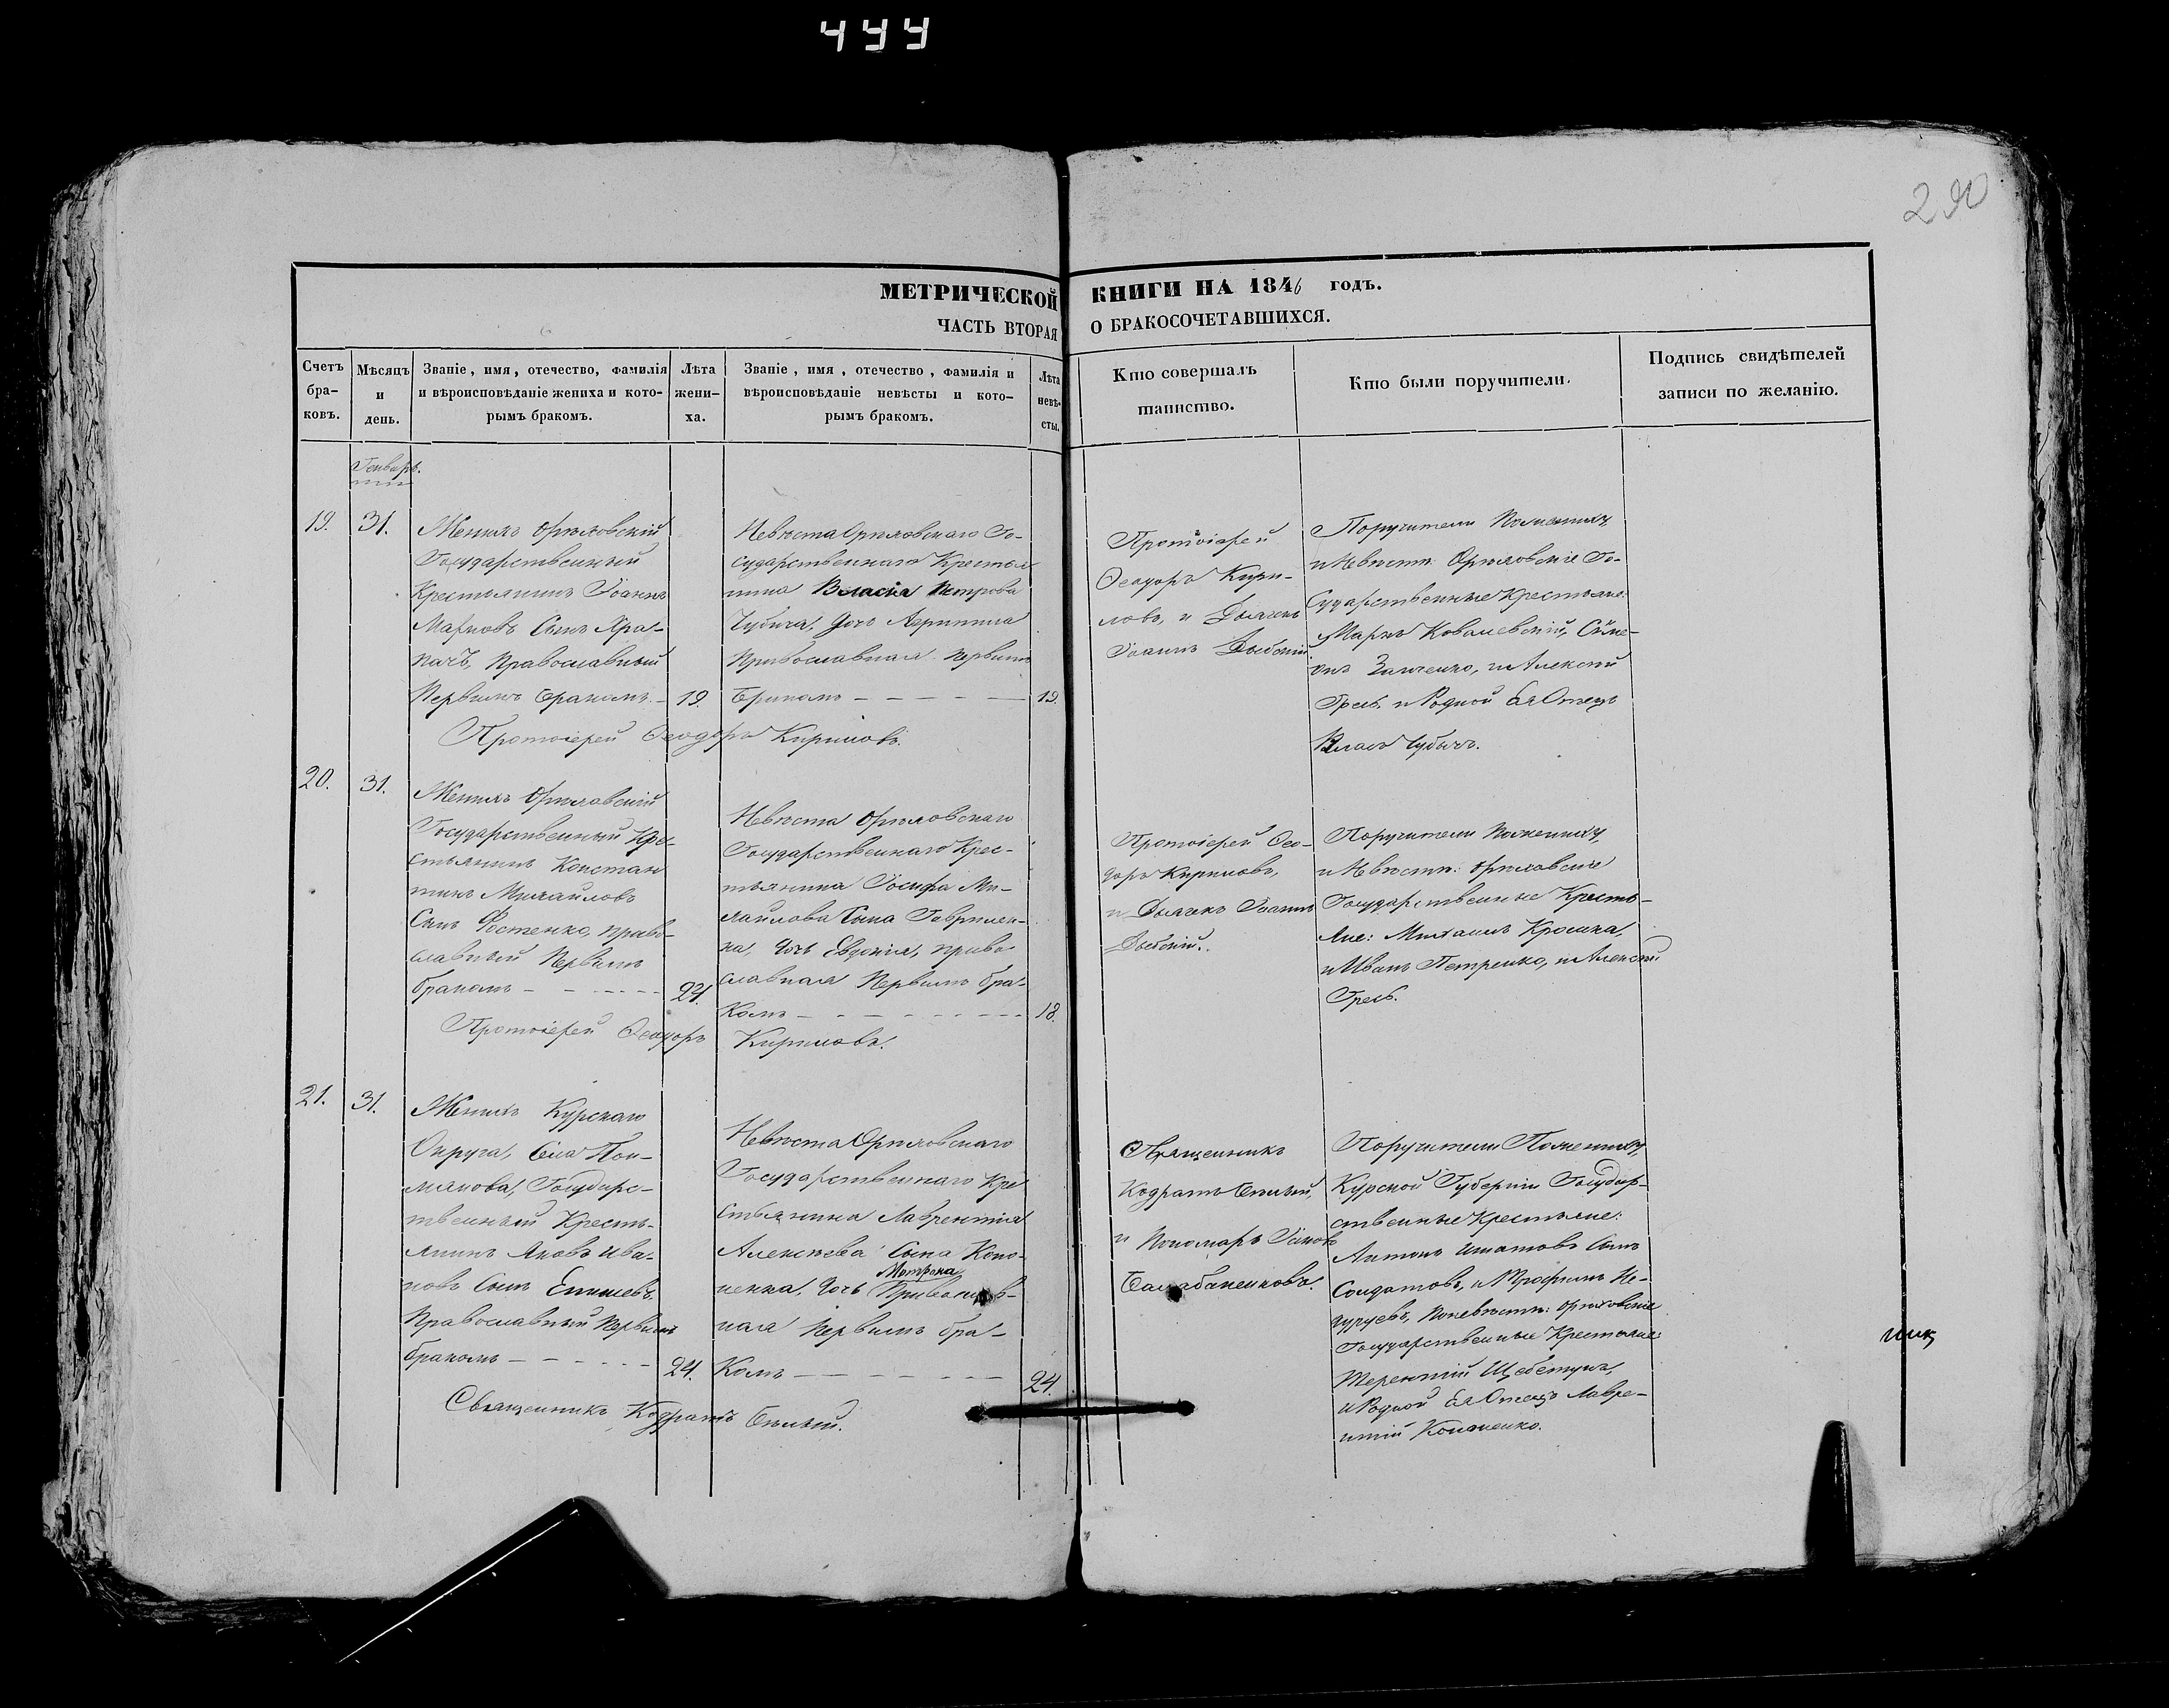 444
290
МЕТРИЧЕСКОЙ КНИГИ НА 1846 годъ.
ЧАСТЬ ВТОРАЯ О БРАКОСОЧЕТАВШИХСЯ.
Счетъ
бра-
ковъ.
Мѣсяцъ
и
день.
Званіе, имя, отечество, фамилія
и вѣроисповѣданіе жениха и кото-
рымъ бракомъ.
Лѣта
жени-
ха.
Званіе, имя, отечество, фамилія и
вѣроисповѣданіе невѣсты и кото-
рымъ бракомъ.
Лѣта
невѣ-
сты.
Кто совершалъ
таинство.
Кто были поручители.
Подпись свидѣтелей
записи по желанію.
Генварь.
19.
31.
Женихъ Орѣховскій
Государственный
Крестьянинъ Іоаннъ
Марковъ Сынъ
Православный
Первымъ бракомъ.
19.
Невѣста Орѣховскаго Го-
сударственнаго Крестья
нина Власія Петрова
Чубича, дочь Агрипина
Православная Первымъ
Бракомъ
19.
Протоіерей
Ѳеодоръ Кири-
ловъ, и Дьячекъ
Іоаннъ
Поручители По жениху
и Невѣстѣ Орѣховскіе Го-
сударственные Крестьяне:
Маркъ Ковалевскій, Симе-
онъ и Алексій
Гресь, и Родной Ея Отецъ
Власъ Чубичъ.
Протоіерей Ѳеодоръ Кириловъ.
20.
31.
Женихъ Орѣховскій
Государственный Кре-
стьянинъ Констан
тинъ Михайловъ
Сынъ Фостенко, право-
славный Первымъ
бракомъ
Невѣста Орѣховскаго
Государственнаго Крес-
тьянина Іосифа Ми-
хайлова Сына Гаврилен-
ка, дочь Евдокія, право
славная Первымъ бра-
комъ
18.
Протоіерей Ѳео-
доръ Кириловъ,
и Дьячекъ Іоаннъ
Поручители По жениху,
и Невѣстѣ: Орѣховскіе
Государственные Кресть-
яне: Михаилъ
и Иванъ Петренко, и Алексій
Гресь.
Протоіерей Ѳеодоръ Кириловъ.
21.
31.
Женихъ Курскаго
Округа, Села
Государс-
твенный Кресть-
янинъ Яковъ Ива-
новъ Сынъ
Православный Первымъ
бракомъ
24.
Невѣста Орѣховскаго
Государственнаго Кре
стьянина Лаврентія
Алексѣева Сына Коно-
ненка, дочь Мотрона Православ-
ная Первымъ бра-
комъ
24.
Священникъ
Кодратъ Бѣлый,
и Пономарь Іаковъ
Поручители По жениху,
Курской Губерніи Государ-
ственные Крестьяне:
Антонъ Сынъ
Солдатовъ, и Трофимъ
По невѣстѣ: Орѣховскіе
Государственные Крестьяне:
Терентій Щебетунъ,
и Родной Ея Отецъ Лавре-
нтій Кононенко.
Священникъ Кодратъ Бѣлый.